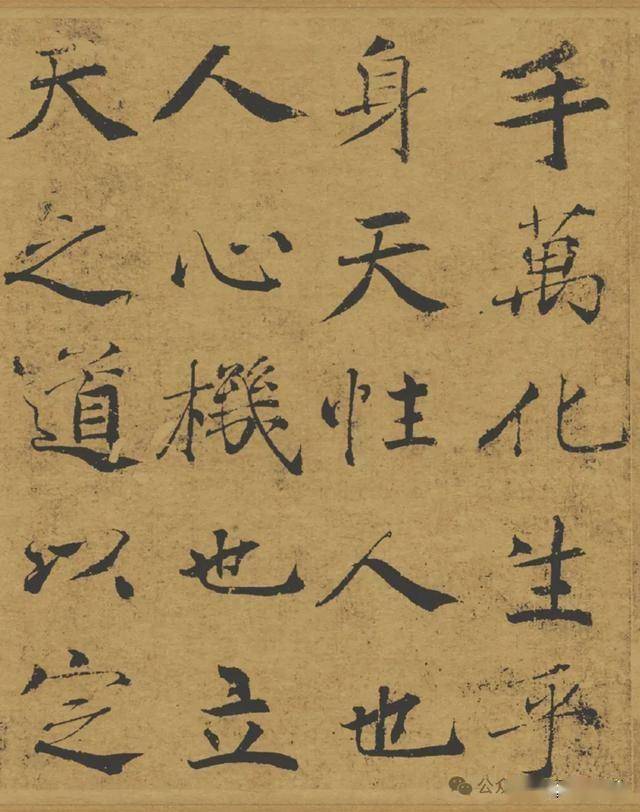 手萬化生乎
身天性人也
人心機也立
天之道以定
公众